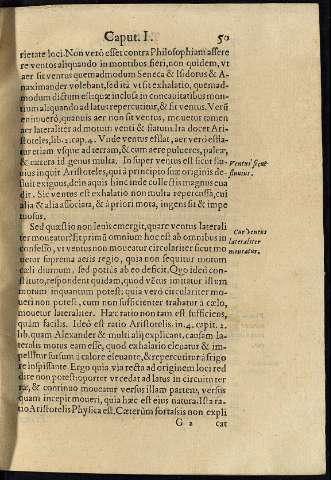 Caput. I. 50
rietate loci. Non verò esset contra Philosophiam assere
re ventos aliquando in montibus fieri, non quidem, vt
aer sit ventus quemadmodum Seneca & Isidorus & A-
naximander volebant, sed ita vt sit exhalatio, quemad-
modum dictum est: quæ inclusa in concauitatibus mon-
tium aliquando ad latus repercutitur, & sit ventus. Verũ
enimuerò, quamuis aer non sit ventus, mouetur tamen
aer lateraliter ad motum venti & flatum. Ita docet Ari-
toteles, lib. 2. cap. 4. Vnde ventus efflat, aer verò effla-
tur etiam vsque ad terram, & cum aere pulueres, paleæ,
& cætera id genus multa. In super ventus est sicut flu-
uius inquit Aristoteles, qui à principio suæ originis de-
fluit exiguus, dein aquis hinc inde collectis magnus eua
dit. Sic ventus est exhalatio non multa repercussa, cui
alia & alia associata, & à priori mota, ingens sit & impe
tuosus.
Ventus sicut
fluuius.
Sed quæstio non leuis emergit, quare ventus laterali
ter moueatur? Et primũ omnium hoc est ab omnibus in
confesso, vt ventus non moueatur circulariter sicut mo
uetur suprema aeris regio, quia non sequitur motum
cæli diurnum, sed potiùs ab eo deficit. Quo ideo con-
stituto, respondent quidam, quod vẽtus imitatur illum
motum inquantum potest: quia verò circulariter mo-
ueri non potest, cum non sufficienter trahatur à cælo,
mouetur lateraliter. Hæc ratio non tam est sufficiens,
quàm facilis. Ideò est ratio Aristotelis. in. 4. capit. 2.
lib. quam Alexander & multi alij explicant, causam la-
teralis motus eam esse, quod exhalatio eleuatur & im-
pellitur sursum à calore eleuante, & repercutitur à frigo
re inspissante. Ergo quia via recta ad originem loci red
dire non potest: oportet vt cedat ad latus in circuitu ter
ræ, & continuo moueatur versus illam partem, versus
quam incepit moueri, quia hæc est eius natura. Ista ra-
tio Aristotelis Physica est. Cæterùm fortassis non expli
Cur ventus
lateraliter
moueatur.
G 2 cat